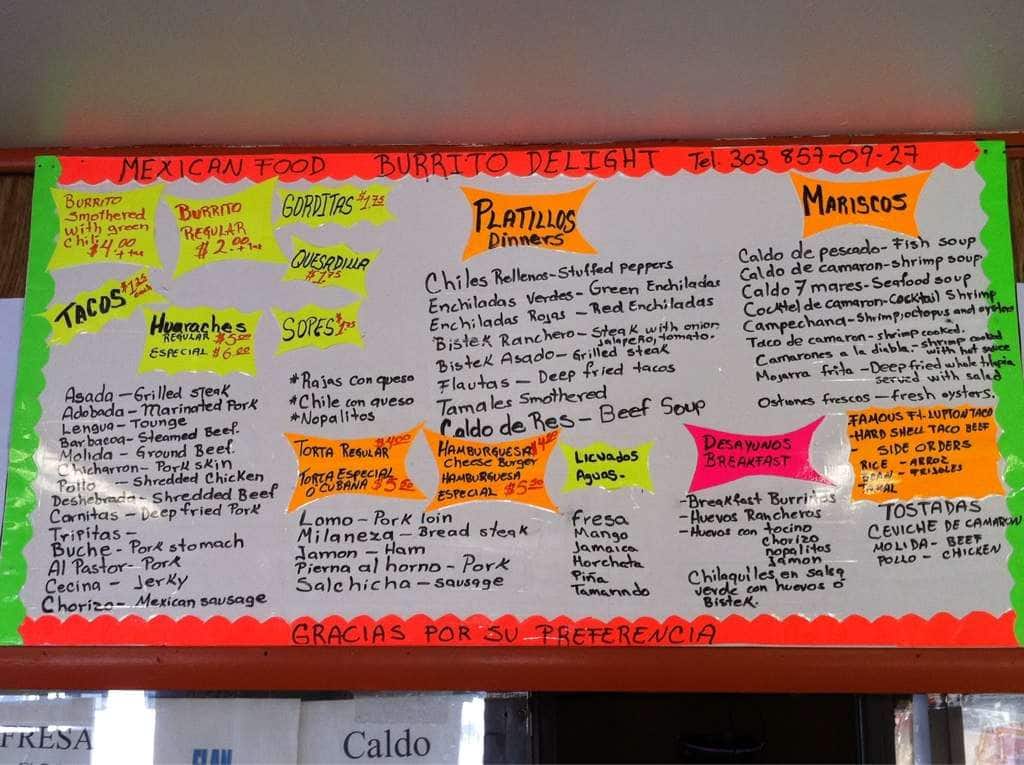 MEXICAN FOOD BURRITO DELIGHT Tel. 303 857-09-27
BURRITO
Smothered
with green
Chili
$4.00
+ tax
BURRITO
REGULAR
$2.00
+ tax
GORDITAS $1.75
QUESADILLA
$1.75
TACOS $1.25
each
Huaraches
REGULAR $5.00
ESPECIAL $6.00
SOPES $1.75
Asada - Grilled steak
Adobada - Marinated Pork
Lengua - Tounge
Barbacoa - Steamed Beef.
Molida - Ground Beef.
Chicharron - Pork skin
Pollo - Shredded Chicken
Deshebrada - Shredded Beef
Carnitas - Deep fried Pork
Tripitas -
Buche - Pork stomach
Al Pastor - Pork
Cecina - Jerky
Chorizo - Mexican sausage
*Rajas con queso
*Chile con queso
*Nopalitos
TORTA REGULAR $4.00
TORTA ESPECIAL
O CUBANA $5.50
HAMBURGUESA
Cheese Burger
HAMBURGUESA
ESPECIAL $5.50
Lomo - Pork loin
Milaneza - Bread steak
Jamon - Ham
Pierna al horno - Pork
Salchicha - sausage
PLATILLOS
Dinners
Chiles Rellenos - Stuffed peppers
Enchiladas Verdes - Green Enchiladas
Enchiladas Rojas - Red Enchiladas
Bistek Ranchero - Steak with onion
jalapeño, tomato.
Bistek Asado - Grilled steak
Flautas - Deep fried tacos
Tamales Smothered
Caldo de Res - Beef Soup
LICUADOS
Aguas.
Fresa
Mango
Jamaica
Horcheta
Piña
Tamarindo
DESAYUNOS
BREAKFAST
- Breakfast Burritos
- Huevos Rancheros
- Huevos con tocino
chorizo
nopalitos
Jamon
Chilaquiles en salsa
verde con huevos o
Bistek.
MARISCOS
Caldo de pescado - Fish soup
Caldo de camaron - shrimp soup
Caldo 7 mares - Seafood soup
Cocktel de camaron - cocktail Shrimp
Campechana - Shrimp, octopus and oysters
Taco de camaron - shrimp cooked.
Camarones a la diabla - shrimp cooked
with hot sauce
Mojarra frita - Deep fried whole tilapia
served with salad
Ostiones frescos - fresh oysters.
FAMOUS Ft. LUPTON TACO
- HARD SHELL TACO BEEF
- SIDE ORDERS
RICE - ARROZ
BEAN - FRIJOLES
TOSTADAS
CEVICHE DE CAMARON
MOLIDA - BEEF
POLLO - CHICKEN
GRACIAS POR SU PREFERENCIA
FRESA
FLAN
Caldo